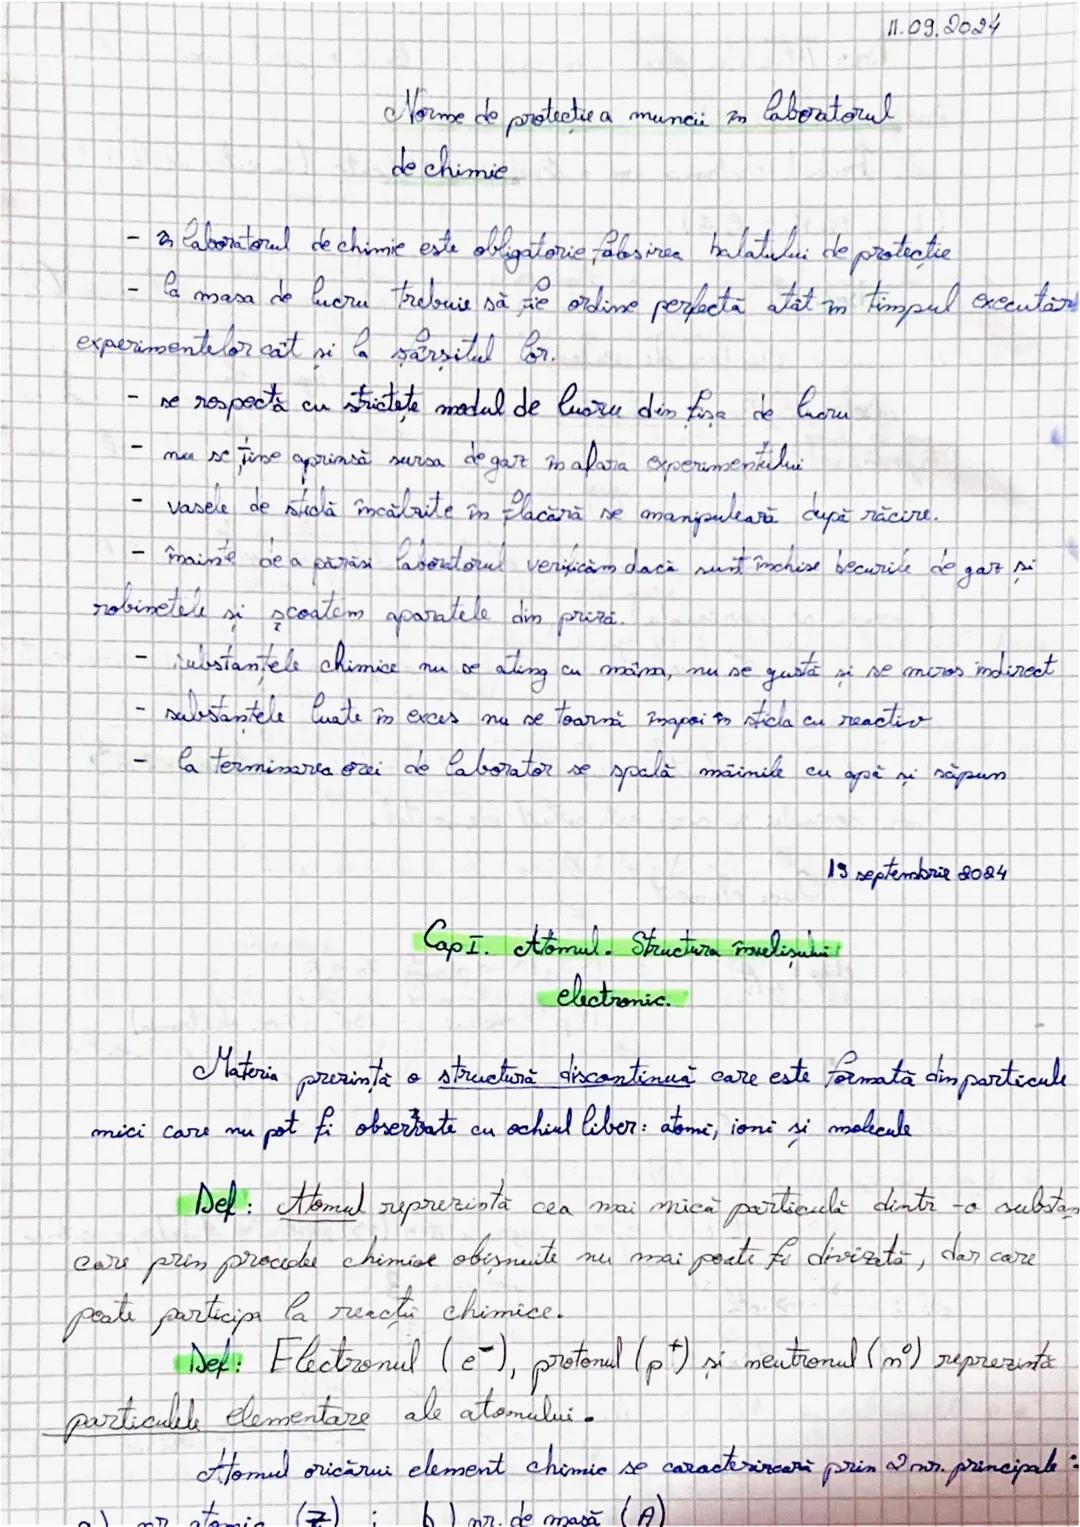 11.09.2024
Norme de protectie a muncii în laboratorul
de chimie
- în laboratorul de chimie este obligatorie folosirea halatului de protectie
- la masa de lucru trebuie să fie ordine perfectă atât în timpul executăr
experimentelor cât si la sfârsitul lor.
- se respectă cu strictete modul de lucru din fisa de lucru
- nu se tine aprinsă sursa de gaz în afara experimentului
- vasele de sticlă încălzite în flacără se manipulează după răcire.
- înainte de a părăsi laboratorul verificăm dacă sunt închise becurile de gaz si
robinetele si scoatem aparatele din priză.
- substanțele chimice nu se ating cu mâna, nu se gustă si se miros indirect
- substantele luate în exces nu se toarnă înapoi în sticla cu reactiv
- la terminarea orei de laborator se spală mâinile cu apă si săpun
19 septembrie 2024
Cap I. Atomul. Structura învelișului
electronic.
Materia prezintă o structură discontinuă care este formată din particule
mici care nu pot fi observate cu ochiul liber: atomi, ioni si molecule
Def: Atomul reprezintă cea mai mică particulă dintr-o substan
care prin procedee chimice obisnuite nu mai poate fi divizată, dar care
poate participa la reactii chimice.
Def: Electronul (e⁻), protonul (p⁺) si neutronul (n⁰) reprezintă
particulele elementare ale atomului.
Atomul oricărui element chimic se caracterizează prin 2 nr. principale:
a) nr atomic (Z) ; b) nr. de masă (A)